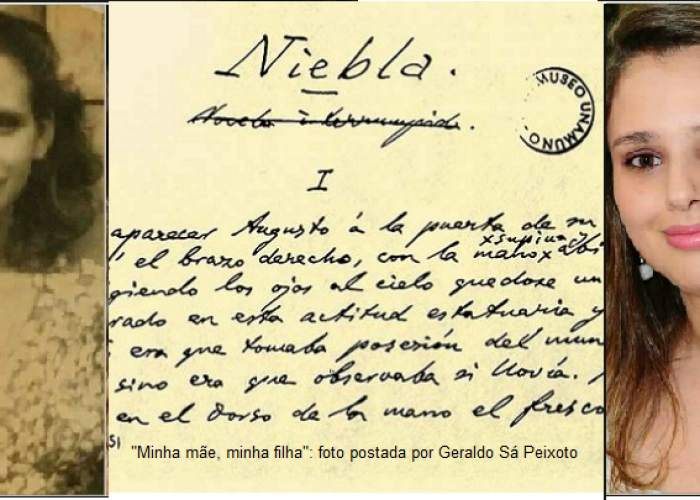 Niebla.
MUSEO UNAMUNO
Novela interrumpida.
I
aparecer Augusto á la puerta de su
xsupina y
el brazo derecho, con la manox abi
giendo los ojos al cielo quedose un
rado en esta actitud estatuaria y
era que tomaba posesión del mun
sino era que observaba si llovía.
en el dorso de la mano el fresco
SI
"Minha mãe, minha filha": foto postada por Geraldo Sá Peixoto